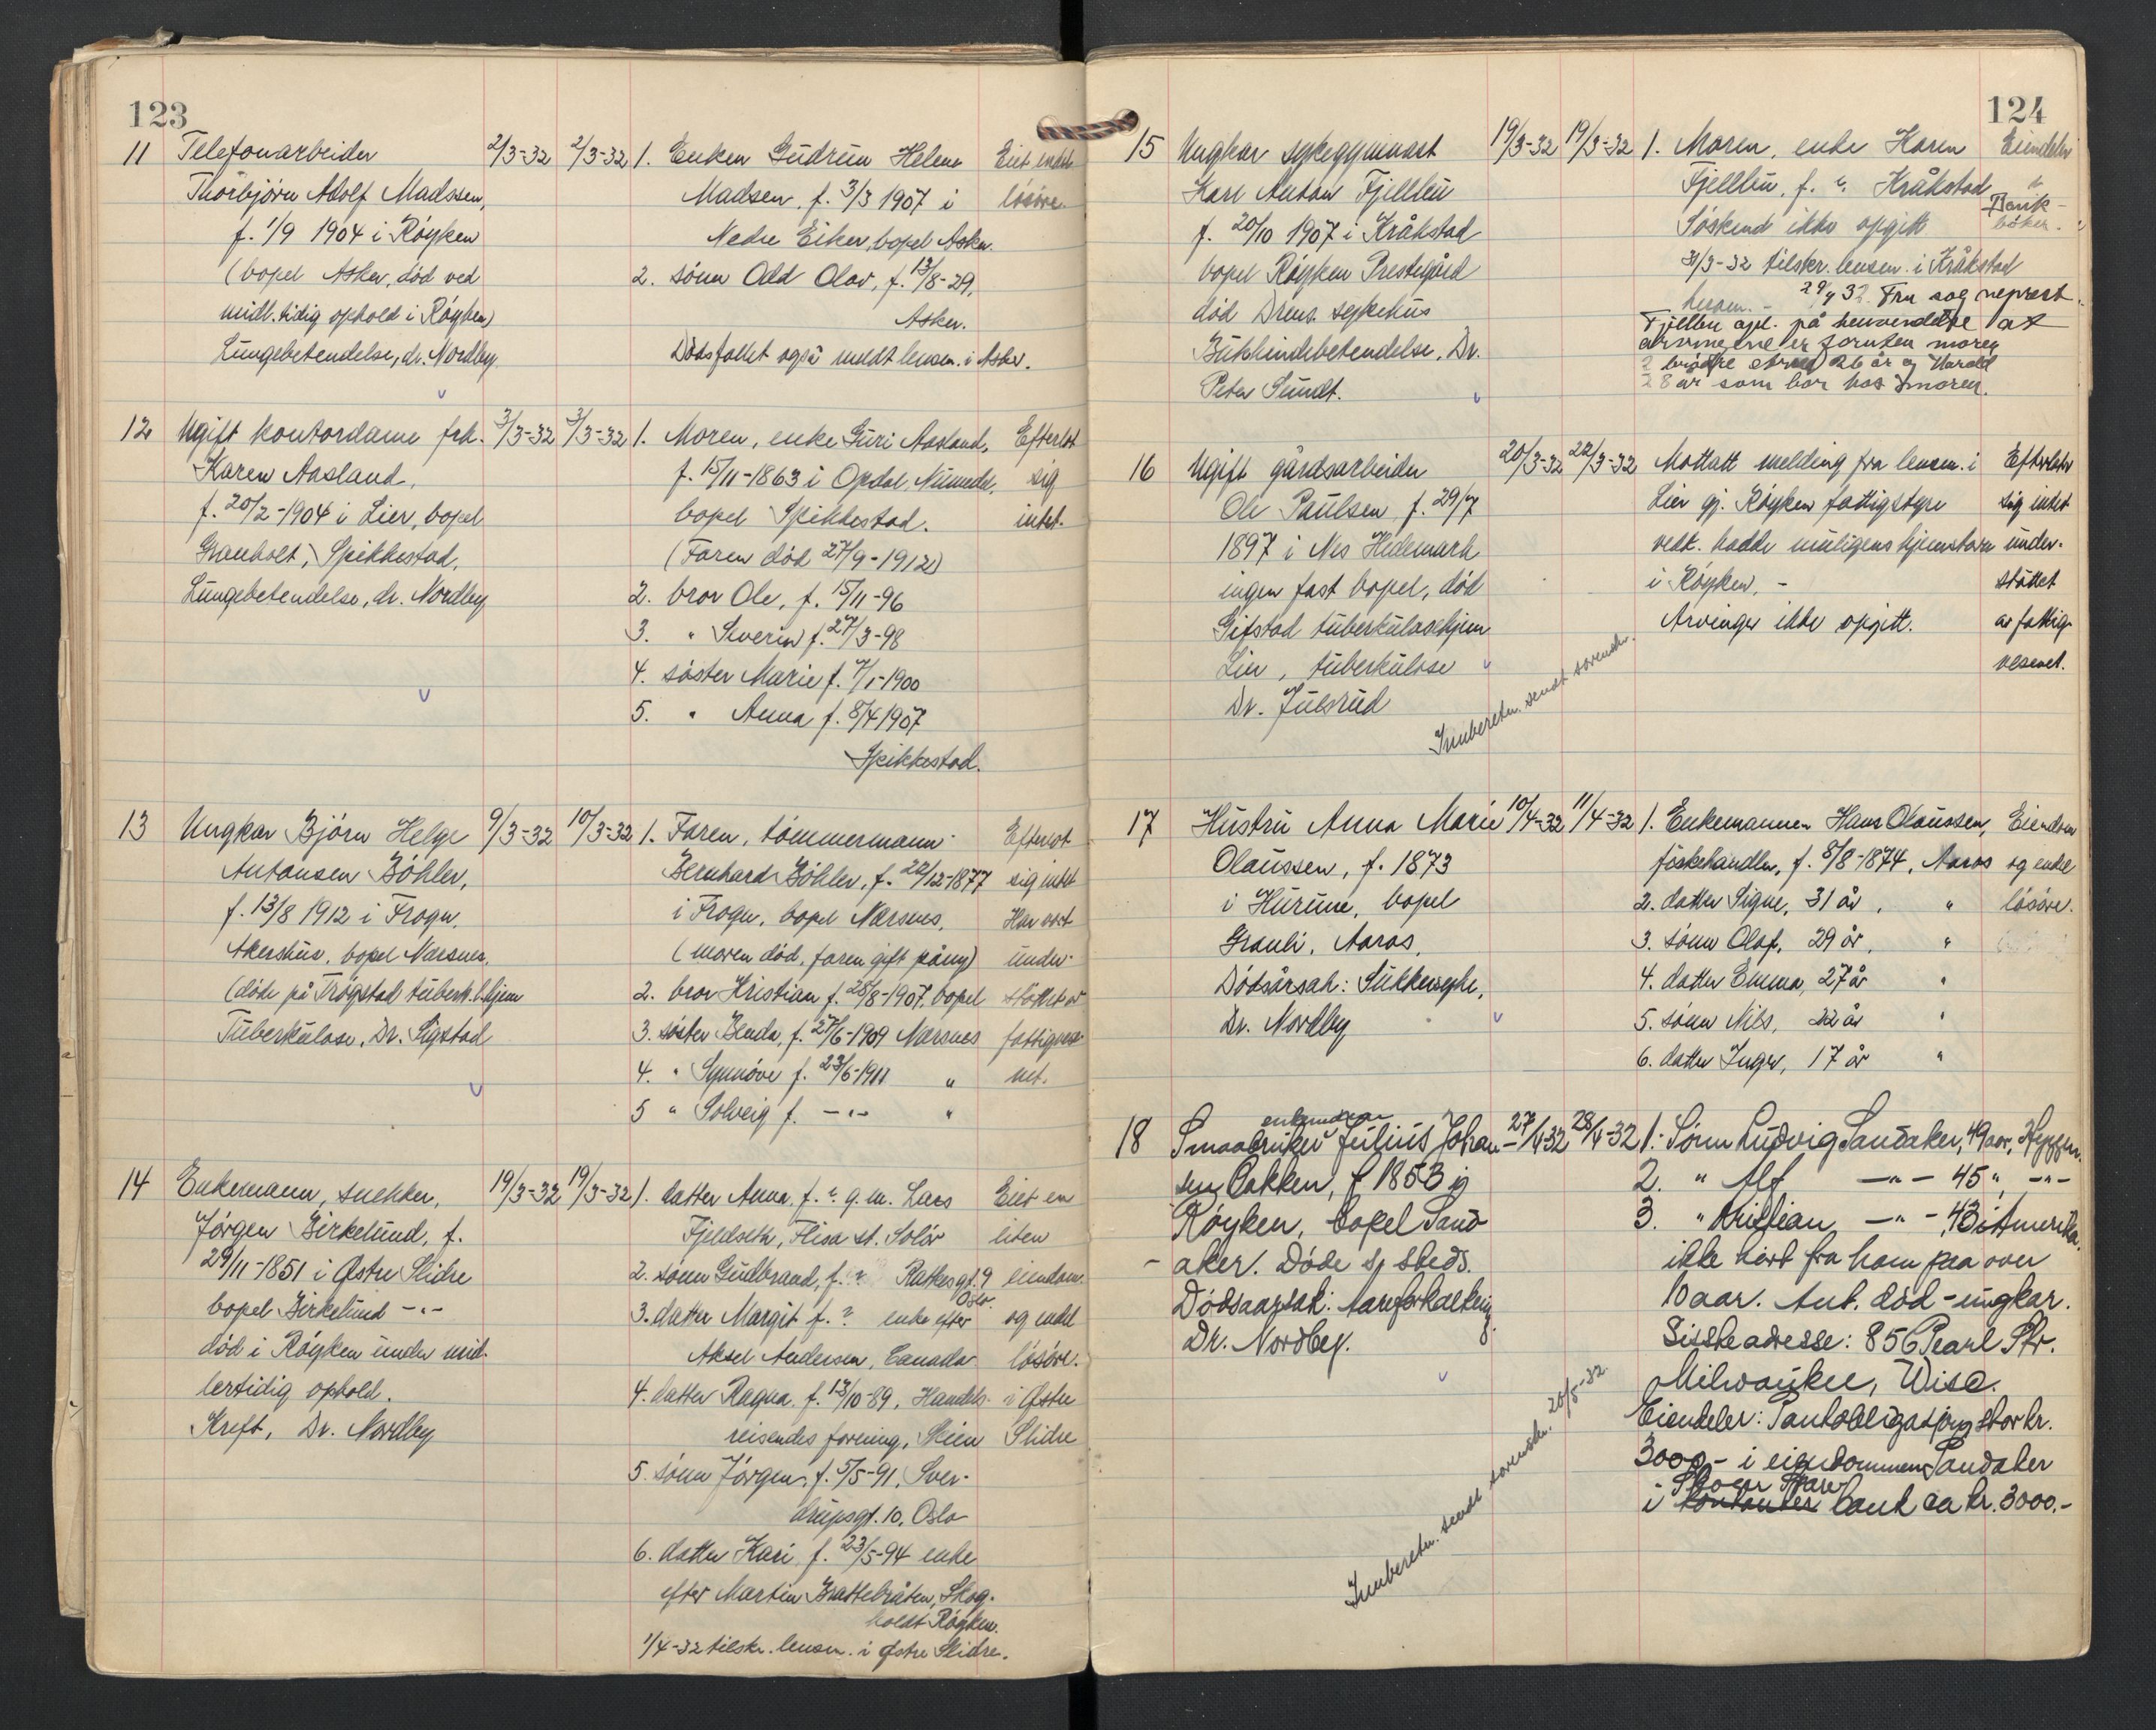 123
11 Telefonarbeider 2/3-32 2/3-32 1. Enken Gudrun Helene Eiet endel
Thorbjörn Adolf Madssen, Madsen, f. 3/3 1907 i lösöre.
f. 1/9 1904 i Röyken Nedre Eiker, bopel Asker.
(bopel Asker, död ved 2. sönn Odd Olav, f. 13/8-29,
midl.tidig ophold i Röyken) Asker.
Lungebetendelse, dr. Nordby. Dödsfallet også meldt lensm. i Asker.
12 Ugift kontordame frk. 3/3-32 3/3-32 1. Moren, enke Guri Aasland, Efterlot
Karen Aasland, f. 15/11-1863 i Opdal, Numedal, sig
f. 20/2-1904 i Lier, bopel bopel Spikkestad. intet.
Granholt, Spikkestad. (Faren död 27/9-1912)
Lungebetendelse, dr. Nordby 2. bror Ole, f. 15/11-96
3. " Severin f. 27/3-98
4. söster Marie f. 7/1-1900
5. " Anna f. 8/4 1907
Spikkestad.
13 Ungkar Björn Helge 9/3-32 10/3-32 1. Faren, tömmermann Efterlot
Antonsen Böhler, Bernhard Böhler, f. 22/12-1877 sig intet
f. 13/8 1912 i Frogn, i Frogn, bopel Nærsnes, Har vært
Akershus, bopel Nærsnes, (moren död, faren gift påny) under-
(döde på Trögstad tuberk.hjem 2. bror Kristian f. 28/8-1907, bopel støttet av
Tuberkulose, Dr. Sigstad 3. söster Benda, f. 27/6-1909 Nærsnes fattigves-
4. " Synnöve f. 23/6-1911 " net.
5 " Solveig f. -"- "
14 Enkemann, snekker, 19/3-32 19/3-32 1. datter Anna, f. ? g.m. Lars Eiet en
Jörgen Birkelund, f. Fjeldseth, Flisa st. Solör liten
29/11-1851 i Østre Slidre 2. sönn Gudbrand, f. ? Rathkesgt. 9 eiendom
Oslo.
bopel Birkelund -"- 3. datter Margit f. ? enke efter og endel
död i Röyken under mid- Aksel Andersen, Canada lösöre.
lertidig ophold. 4. datter Ragna, f. 13/10-89, Handels- i Østre
Kreft, Dr. Nordby reisendes forening, Skien Slidre
5. sönn Jörgen, f. 5/5-91, Sver-
drupsgt. 10, Oslo
6. datter Kari, f. 23/5-94 enke
efter Martin Brattebråten, Skog-
holdt Röyken.
1/4-32 tilskr. lensm. i Østre Slidre.
124
15 Ungkar sykegymnast 19/3-32 19/3-32 1. Moren, enke Karen Eiendeler
Karl Anton Fjellbu Fjellbu, f. ? Kråkstad
Bank-
f. 20/10 1907 i Kråkstad Søskend ikke opgitt böker.
bopel Röyken Prestegård 31/3-32 tilskr. lensm. i Kråkstad
29/4 32. Fru sogneprest
död Drms. sykehus Fjellbu opl. på henvendelse at
Bukhindebetendelse, Dr. arvingene er foruten moren
2 brødre 26 år og Harald
Peter Sundt. 28 år som bor hos moren.
16 Ugift gårdsarbeider 20/3-32 22/3-32 Mottatt melding fra lensm. i Efterlater
Ole Paulsen, f. 29/7 Lier gj. Röyken fattigstyre sig intet
1897 i Nes Hedemark vedk. hadde muligens hjemstavn under-
ingen fast bopel, död i Röyken. - støttet
Gifstad tuberkulosehjem Arvinger ikke opgitt. av fattig-
Lier, tuberkulose vesenet.
Dr. Julsrud
Innberetn. sendt sorenskr.
17 Hustru Anna Marie 10/4-32 11/4-32 1. Enkemannen Hans Olaussen, Eiendom
Olaussen, f. 1873 fiskehandler, f. 8/8-1874, Aaros og endel
i Hurum, bopel 2. datter Signe, 31 år, " lösöre.
Granli, Aaros, 3. sönn Olaf, 29 år, "
Dödsårsak: Sukkersyke, 4. datter Emma, 27 år "
Dr. Nordby 5. sönn Nils, 22 år "
6. datter Inger, 17 år "
enkemann
18 Smaabruker Julius Johan- 27/4-32 28/4-32 1. Sönn Ludvig Sandaker, 49 aar, Hyggen.
sen Bakken, f. 1853 i 2. " Alf -"- 45 " -"-
Röyken, bopel Sand- 3. " Kristian -"- 43 i Amerika.
aker. Döde s. steds. ikke hört fra ham paa over
Dödsaarsak: Aareforkalkning. 10 aar. Ant. död - ungkar.
Dr. Nordby. Sisste adresse: 856 Pearl Str.
Milwaukee, Wisc.
Eiendeler: Pantobligasjon stor kr.
3000,- i eiendommen Sandaker
Röyken Spare
i kontanter bank ca kr. 3000,-
Innberetn. sendt sorenskr. 20/5-32.